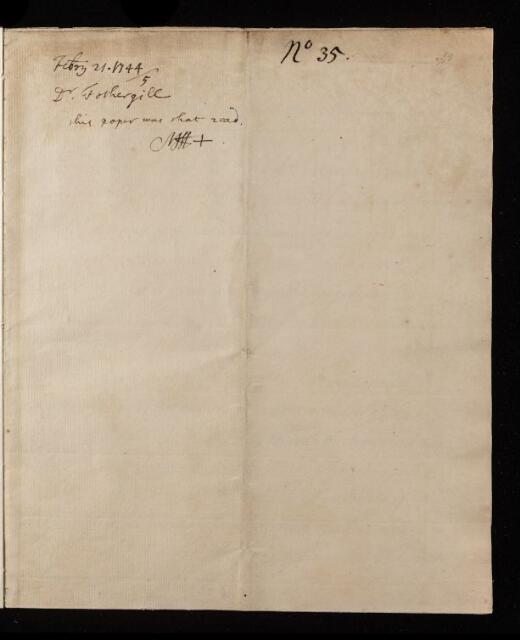 Febry 21. 1744/5
Dr. Fothergill
this paper was that read.
No 35.